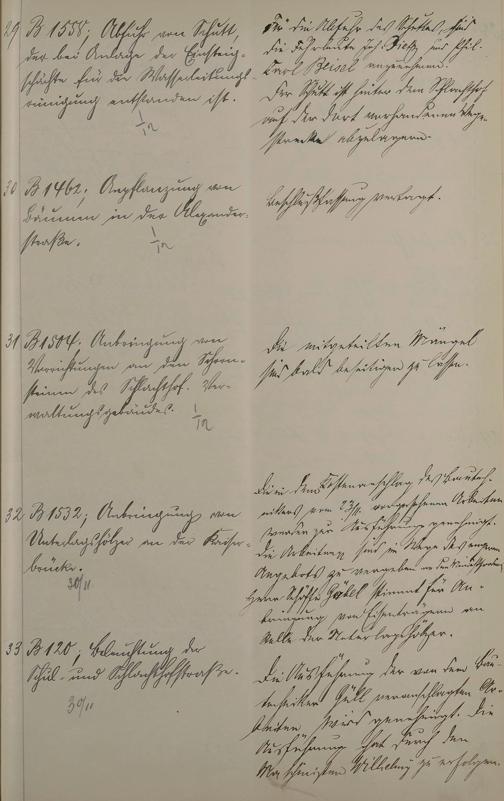 29 B 1558; Abfuhr von Schutt,
der bei Anlage der Einsteig-
schächte für die Wasserleitungs-
reinigung entstanden ist.
1/12
Für die Abfuhr des Schuttes sind
die Fuhrleute und Phil.
Carl Beisel angenommen.
Der Schutt ist hinter dem Schlachthof
auf der dort vorhandenen Wege-
strecke abzulagern.
30 B 1462; Anpflanzung von
Bäumen in der Alexander-
straße.
1/12
Beschlußfassung vertagt.
31 B 1504. Anbringung von
Vorrichtungen an den Schorn-
steinen des Schlachthof-Ver-
waltungsgebäudes.
1/12
Die mitgeteilten Mängel
sind bald beseitigen zu lassen.
32 B 1532; Anbringung von
Unterlagshölzer an der Kaiser-
brücke.
30/11
Die in dem Kostenanschlag des Bautech-
nikers vom 23/11. vorgesehenen Arbeiten
werden zur Ausführung genehmigt.
Die Arbeiten sind im Wege des engeren
Angebots zu vergeben
Herr Schöffe Göbel stimmt für An-
bringung von Eisenträgern an
Stelle der Unterlagshölzer.
33 B 120; Beleuchtung der
Schul- und Schlachthofstraße.
30/11
Die Ausführung der von dem Bau-
techniker Güll veranschlagten Ar-
beiten wird genehmigt. Die
Ausführung hat durch den
Maschinisten Wilhelmy zu erfolgen.